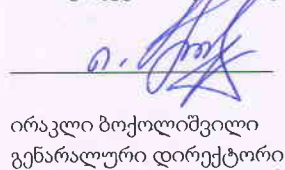 ირაკლი ბოქოლიშვილი
გენარალური დირექტორი